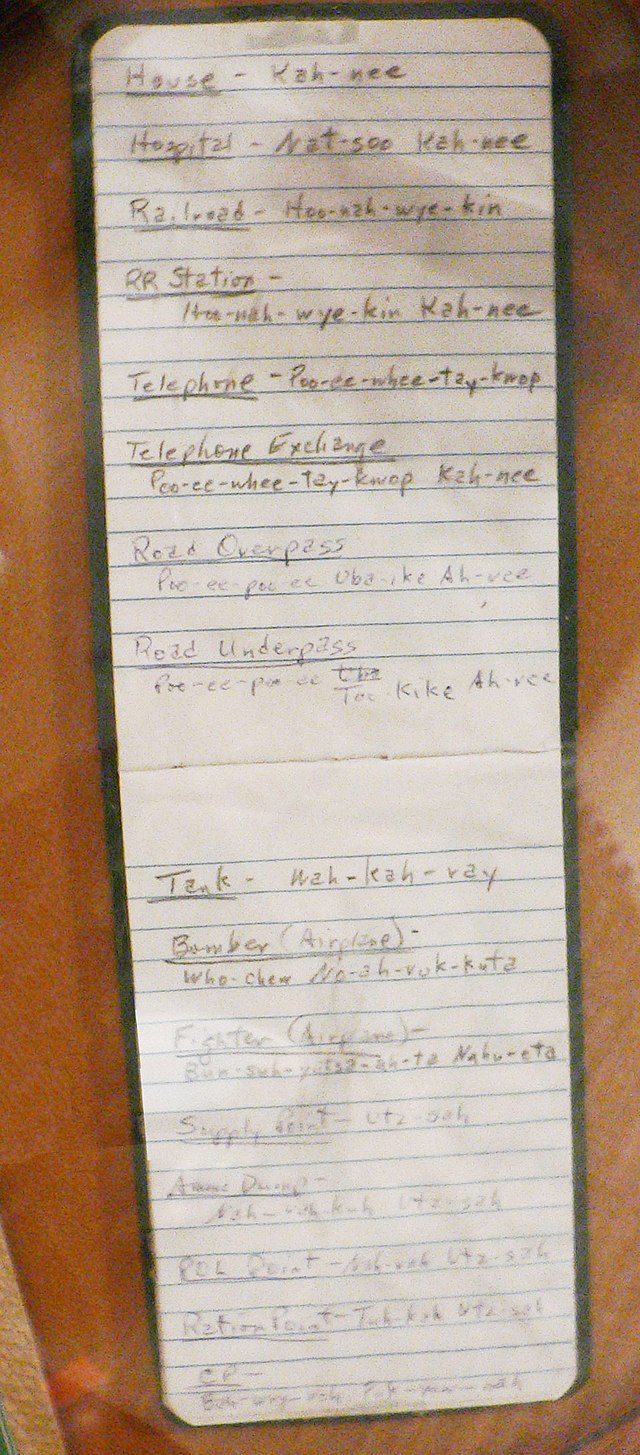 House - Kah-nee
Hospital - Nat-soo Kah-nee
Railroad - Hoo-nah-wye-kin
RR Station -
Hoo-nah-wye-kin Kah-nee
Telephone - Poo-ee-whee-tay-kwop
Telephone Exchange
Poo-ee-whee-tay-kwop Kah-nee
Road Overpass
Poo-ee-poo-ee Uba-ike Ah-ree
Road Underpass
Poo-ee-poo-ee Uba
Too-Kike Ah-ree
Tank - Wah-kah-ray
Bomber (Airplane) -
Who-chew No-ah-vuk-kuta
Fighter (Airplane) -
Nahu-eta
Supply Point - Utz-sah
Ammo Dump -
Utz-sah
POL Point - Nah-vah Utz-sah
Ration Point - Tuh-kah Utz-sah
CP -